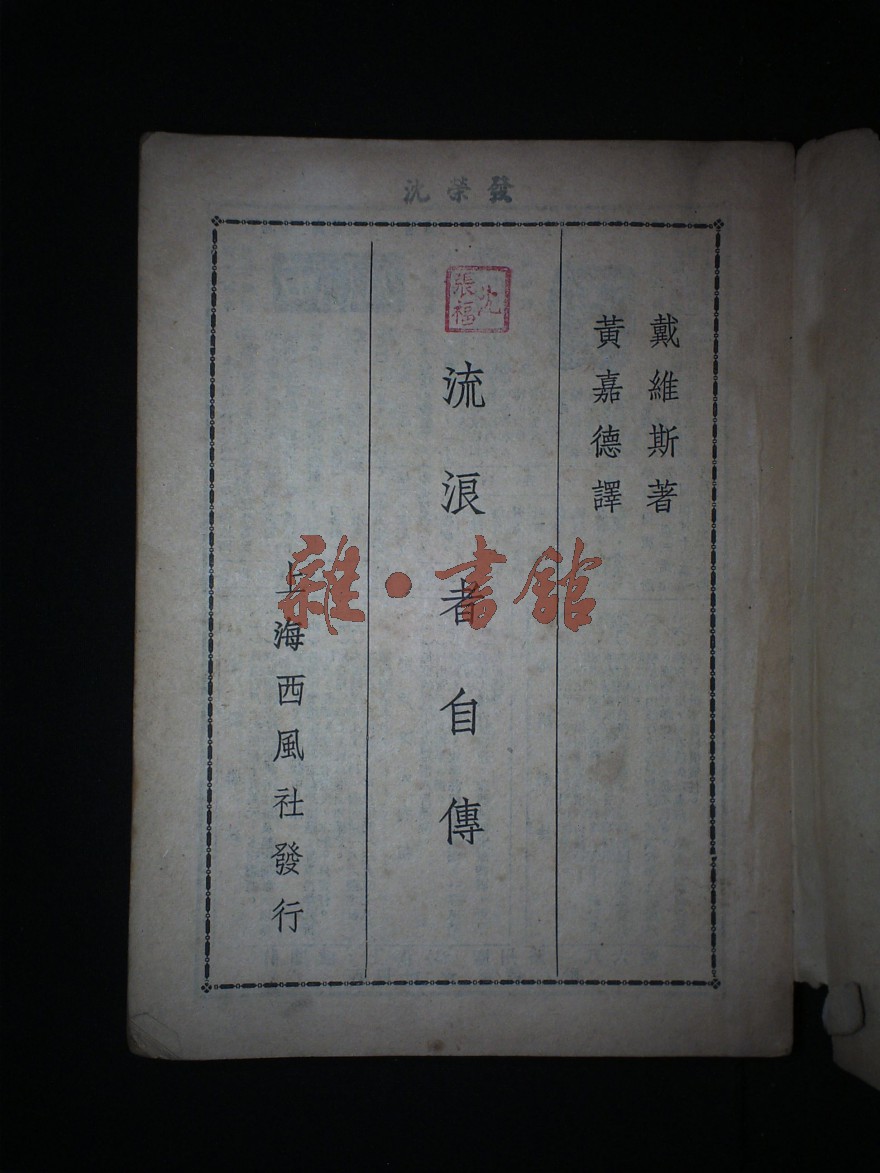 沈榮發
戴維斯著
黃嘉德譯
沈
張福
流浪者自傳
上海西風社發行
雜·書館